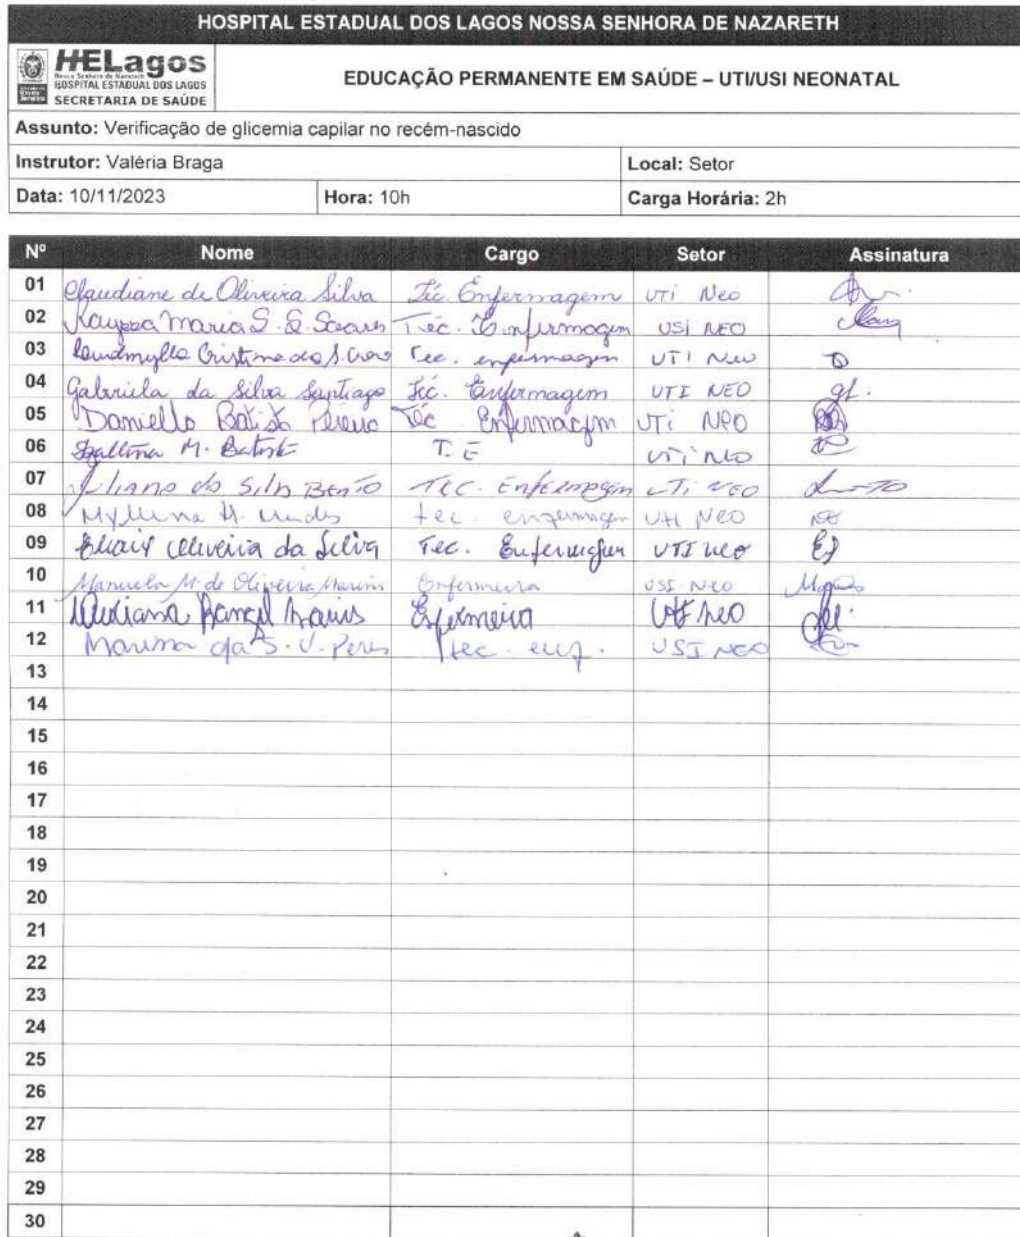 HOSPITAL ESTADUAL DOS LAGOS NOSSA SENHORA DE NAZARETH
HELagos
HOSPITAL ESTADUAL DOS LAGOS
SECRETARIA DE SAÚDE
EDUCAÇÃO PERMANENTE EM SAÚDE – UTI/USI NEONATAL
Assunto: Verificação de glicemia capilar no recém-nascido
Instrutor: Valéria Braga Local: Setor
Data: 10/11/2023 Hora: 10h Carga Horária: 2h
Nº Nome Cargo Setor Assinatura
01 Claudiane de Oliveira Silva Téc. Enfermagem UTI Neo
02 Maria S. Soares Téc. Enfermagem USI NEO
03 Tec. enfermagem UTI Neo
04 Gabriela da Silva Santiago Téc. Enfermagem UTI NEO
05 Batista Téc Enfermagem UTI NEO
06 M. Batista T. E UTI NEO
07 da Silva BENTO TEC. Enfermagem UTI NEO
08 tec. enfermagem UTI NEO
09 Oliveira da Silva Tec. Enfermagem UTI neo
10 Manuela M. de Oliveira Enfermeira USI NEO
11 Rangel Enfermeira UTI Neo
12 da S. V. Peres tec. enf. USI NEO
13
14
15
16
17
18
19
20
21
22
23
24
25
26
27
28
29
30